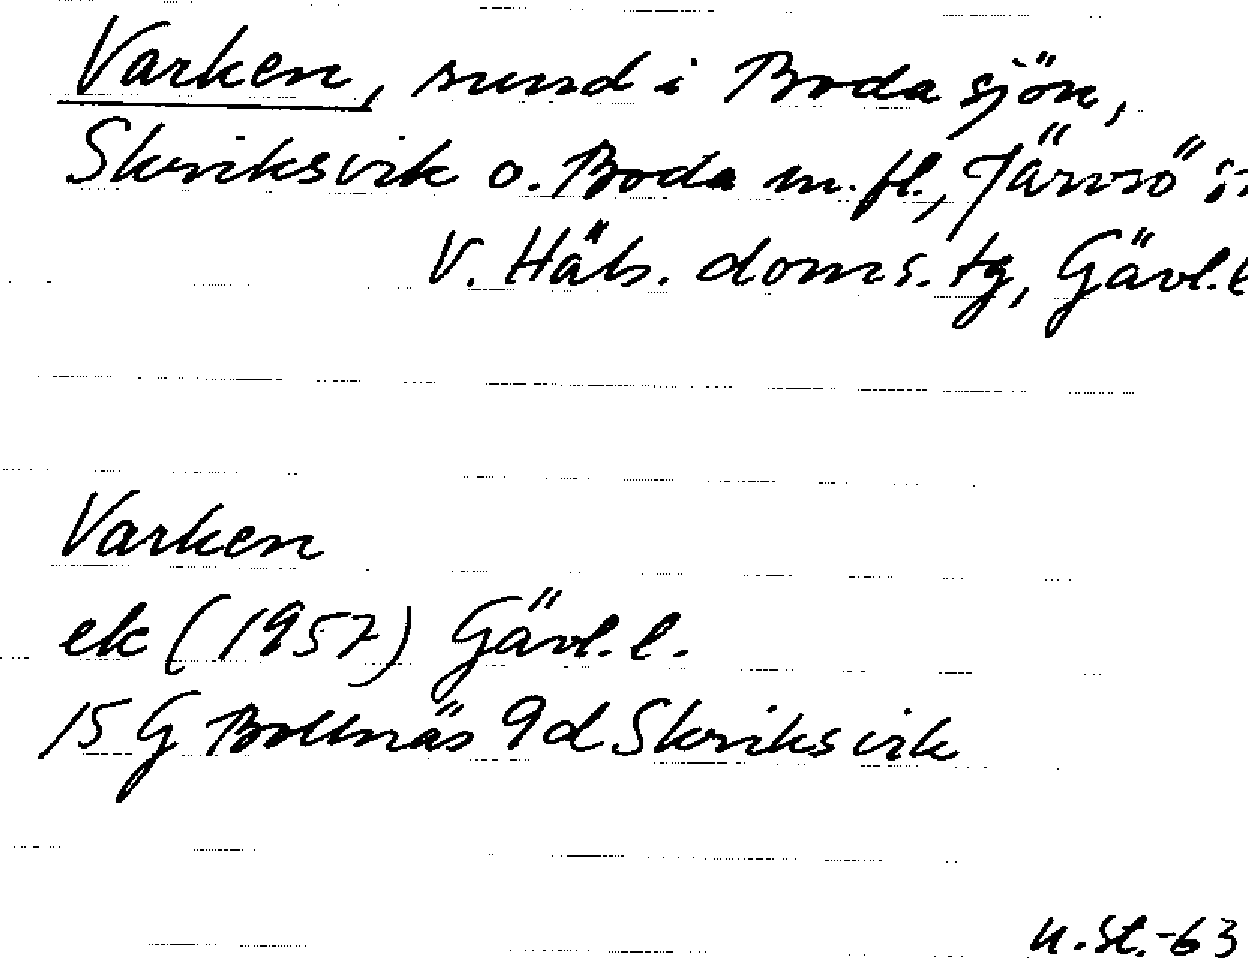 Varken, sund i Bodasjön,
Skriksvik o. Boda m. fl., Järvsö sn
V. Häls. doms. tg, Gävl. l
Varken
ek (1957) Gävl. l.
15 G Bollnäs 9d Skriksvik
U. St. -63